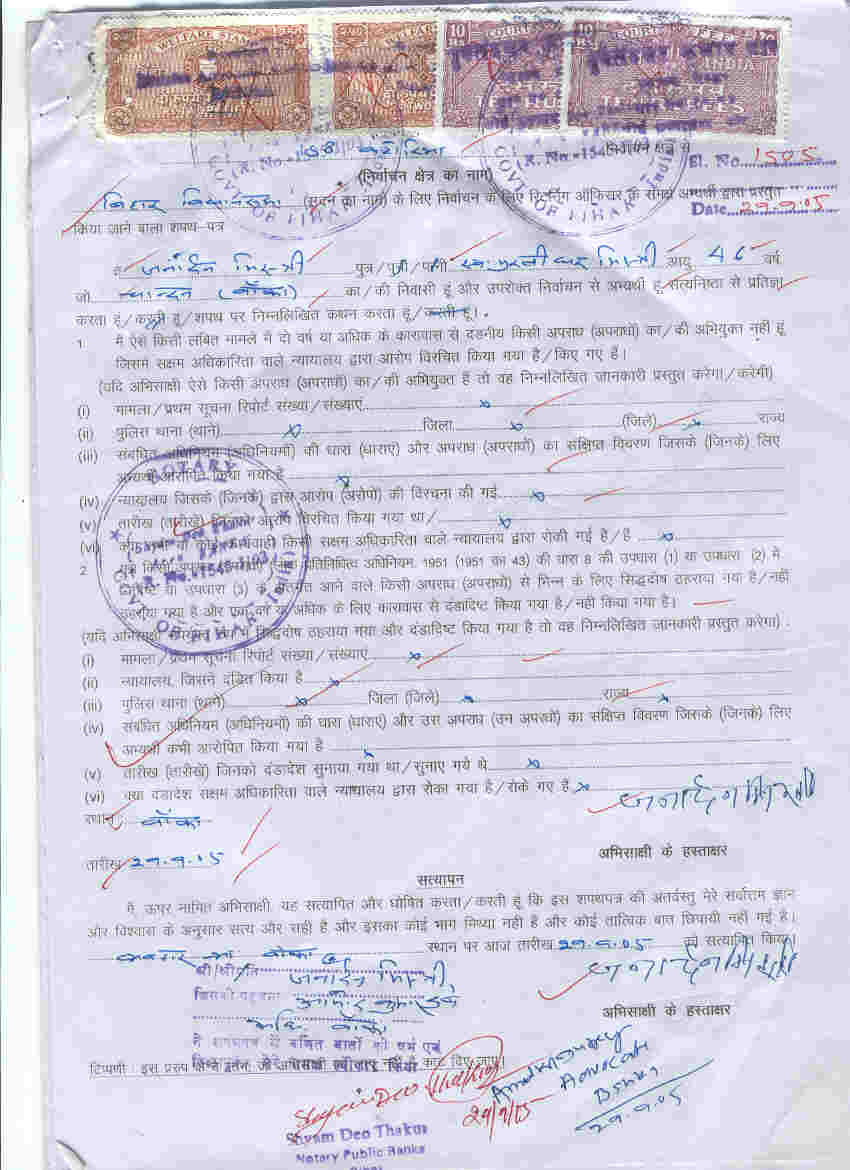 WELFARE STAMP WELFARE COURT FEE INDIA
158 कटोरिया निर्वाचन क्षेत्र से Sl. No. 1505
(निर्वाचन क्षेत्र का नाम)
बिहार विधानसभा (सदन का नाम) के लिए निर्वाचन के लिए रिटर्निंग ऑफिसर के समक्ष अभ्यर्थी द्वारा प्रस्तुत
Date 29.9.05
किया जाने वाला शपथ-पत्र
मैं जनार्दन मिस्त्री पुत्र/पुत्री/पत्नी स्व० मिस्त्री आयु 46 वर्ष
जो चान्दन (बाँका) का/की निवासी हूं और उपरोक्त निर्वाचन से अभ्यर्थी हूं सत्यनिष्ठा से प्रतिज्ञा
करता हूं/करती हूं/शपथ पर निम्नलिखित कथन करता हूं/करती हूं।
1. मैं ऐसे किसी लंबित मामले में दो वर्ष या अधिक के कारावास से दंडनीय किसी अपराध (अपराधों) का/की अभियुक्त नहीं हूं
जिसमें सक्षम अधिकारिता वाले न्यायालय द्वारा आरोप विरचित किया गया है/किए गए हैं।
(यदि अभिसाक्षी ऐसे किसी अपराध (अपराधों) का/की अभियुक्त है तो वह निम्नलिखित जानकारी प्रस्तुत करेगा/करेगी)
(i) मामला/प्रथम सूचना रिपोर्ट संख्या/संख्याएं x
(ii) पुलिस थाना (थाने) x जिला x (जिले) x राज्य
(iii) संबंधित अधिनियम (अधिनियमों) की धारा (धाराएं) और अपराध (अपराधों) का संक्षिप्त विवरण जिसके (जिनके) लिए
अभ्यर्थी आरोपित किया गया है x
(iv) न्यायालय जिसके (जिनके) द्वारा आरोप (आरोपों) की विरचना की गई x
(v) तारीख (तारीखें) जिनको आरोप विरचित किया गया था/ x
(vi) क्या सभी या कोई कार्यवाही किसी सक्षम अधिकारिता वाले न्यायालय द्वारा रोकी गई है/हैं x
2. प्रतिनिधित्व अधिनियम, 1951 (1951 का 43) की धारा 8 की उपधारा (1) या उपधारा (2) में
निर्दिष्ट या उपधारा (3) के अंतर्गत आने वाले किसी अपराध (अपराधों) से भिन्न के लिए सिद्धदोष ठहराया गया है/नहीं
ठहराया गया है और एक वर्ष या अधिक के लिए कारावास से दंडादिष्ट किया गया है/नहीं किया गया है।
(यदि अभिसाक्षी सिद्धदोष ठहराया गया और दंडादिष्ट किया गया है तो वह निम्नलिखित जानकारी प्रस्तुत करेगा)
(i) मामला/प्रथम सूचना रिपोर्ट संख्या/संख्याएं x
(ii) न्यायालय, जिसने दंडित किया है x
(iii) पुलिस थाना (थाने) x जिला (जिले) x राज्य x
(iv) संबंधित अधिनियम (अधिनियमों) की धारा (धाराएं) और उस अपराध (उन अपराधों) का संक्षिप्त विवरण जिसके (जिनके) लिए
अभ्यर्थी कभी आरोपित किया गया है x
(v) तारीख (तारीखें) जिनको दंडादेश सुनाया गया था/सुनाए गये थे x
(vi) क्या दंडादेश सक्षम अधिकारिता वाले न्यायालय द्वारा रोका गया है/रोके गए हैं x
जनार्दन मिस्त्री
स्थान : बाँका
अभिसाक्षी के हस्ताक्षर
तारीख 29.9.05
सत्यापन
मैं, ऊपर नामित अभिसाक्षी, यह सत्यापित और घोषित करता/करती हूं कि इस शपथपत्र की अंतर्वस्तु मेरे सर्वोत्तम ज्ञान
और विश्वास के अनुसार सत्य और सही है और इसका कोई भाग मिथ्या नहीं है और कोई तात्विक बात छिपायी नहीं गई है।
बाँका स्थान पर आज तारीख 29.9.05 को सत्यापित किया।
श्री/श्रीमति जनार्दन मिस्त्री
जनार्दन मिस्त्री
जिसकी पहचान
अभिसाक्षी के हस्ताक्षर
बाँका
ने शपथपत्र में वर्णित बातों को
टिप्पणी : इस प्ररूप के वे स्तंभ, जो अभिसाक्षी को लागू नहीं हैं काट दिए जाएं।
Shyam Deo Thakur
29/9/05
Advocate
Banka
29.9.05
Shyam Deo Thakur
Notary Public Banka